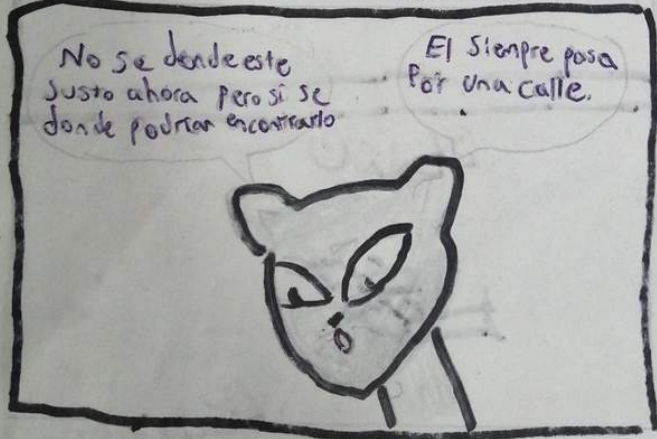 No se dondeeste
Justo ahora pero si se
donde podrian encontrarlo
El Siempre pasa
Por una calle.